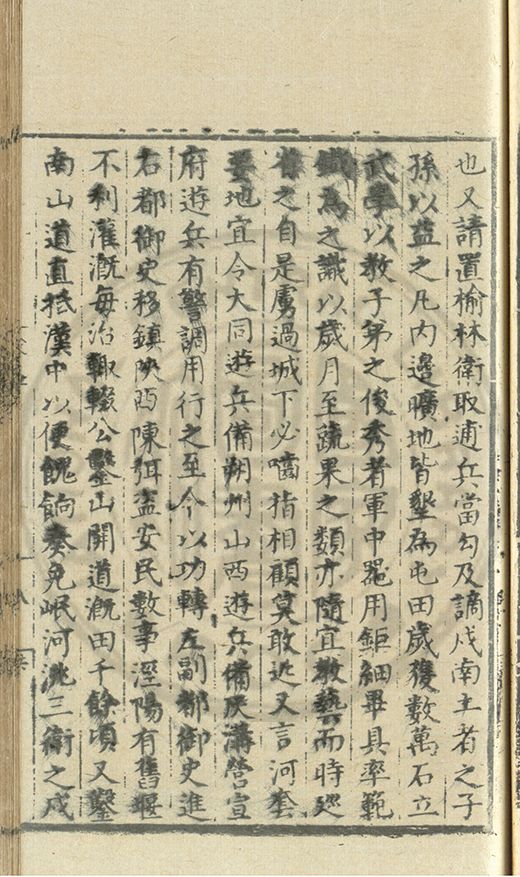 也又請置榆林衛取逋兵當勾及謫戍南土者之子
孫以益之凡內邊曠地皆墾為屯田歲獲數萬石立
武學以教子弟之俊秀者軍中噐用鉅細畢具率範
鐵為之識以歲月至蔬果之類亦隨宜教藝而時
之自是虜過城下必嚙指相顧莫敢近又言河套
要地宜令大同遊兵備朔州山西遊兵備灰溝營宣
府遊兵有警調用行之至今以功轉左副都御史進
右都御史移鎮陝西陳弭盗安民數事涇陽有舊堰
不利灌溉每治輒輟公鑿山開道溉田千餘頃又鑿
南山道直抵漢中以便餽餉奏免岷河洮三衛之戍